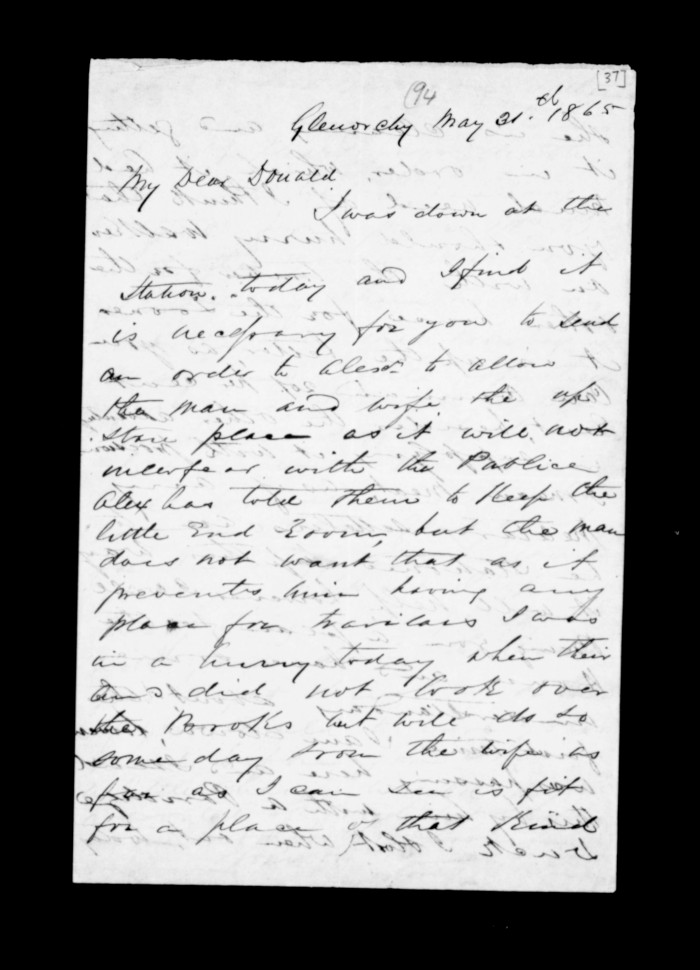 [37]
(94
Glenorchy May 31st 1865
My Dear Donald
I was down at the
Station today and I find it
is necessary for you to send
an order to Alexr to allow
the man and wife the up
stare place as it will not
interfear with the Publice
Alex has told them to Keep the
little End Room, but the man
does not want that as it
prevents him having any
place for travilars I was
in a hurry today when their
and did not look over
the Books but will do so
some day soon the wife as
far as I can see is fit
for a place of that Kind